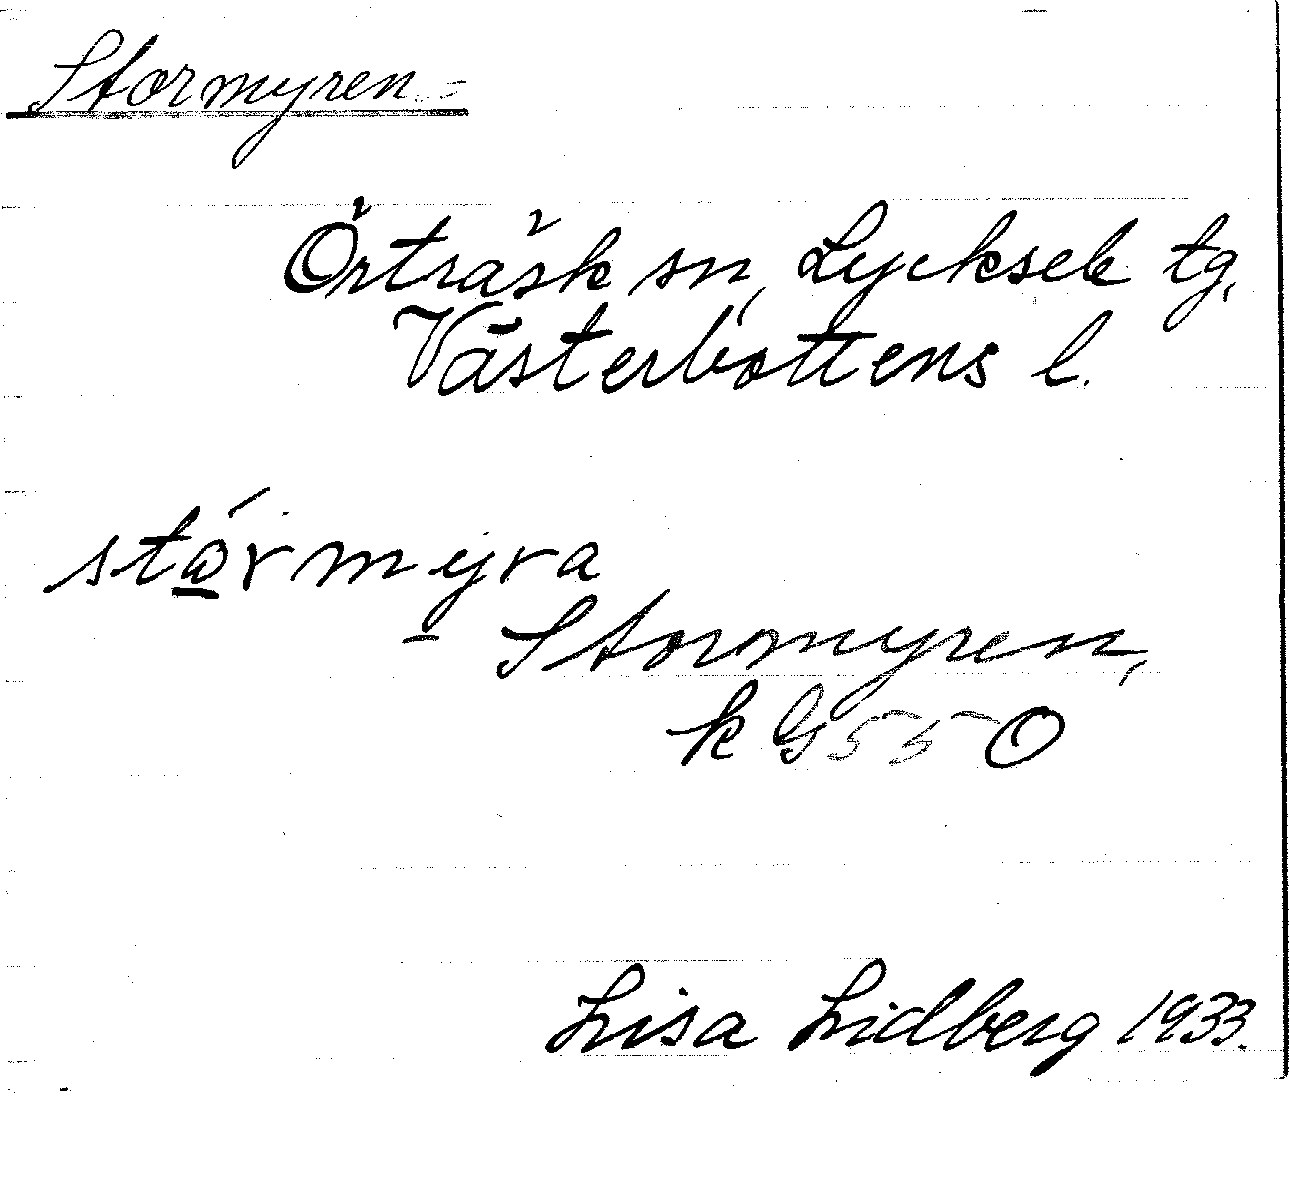 Stormyren
Örträsk sn, Lycksele tg,
Västerbottens l.
stǿrmyra
- Stormyren,
k G 550
Lisa Lidberg 1933.